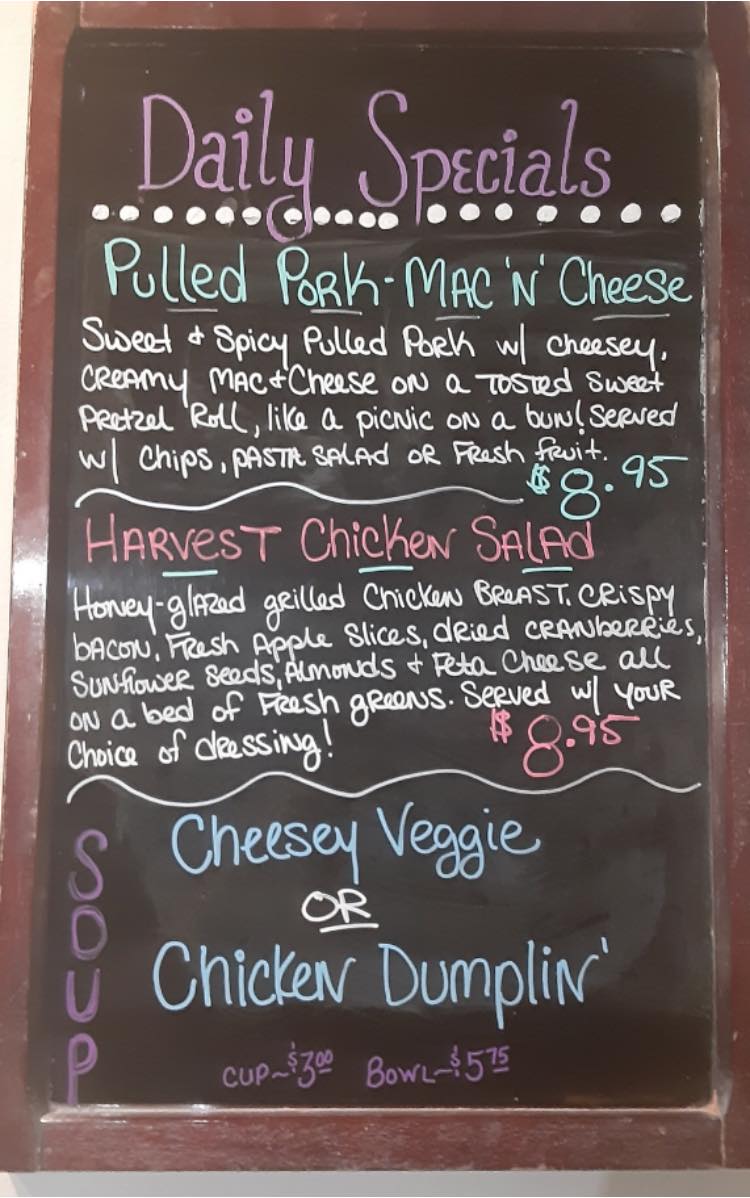 Daily Specials
Pulled Pork-Mac 'N' Cheese
Sweet & Spicy Pulled Pork w/ cheesey,
creamy Mac & Cheese on a tosted sweet
Pretzel Roll, like a picnic on a bun! Served
w/ chips, pasta salad or fresh fruit.
$8.95
Harvest Chicken Salad
Honey-glazed grilled Chicken Breast, crispy
bacon, Fresh Apple Slices, dried cranberries,
Sunflower Seeds, Almonds & Feta Cheese all
on a bed of Fresh greens. Served w/ your
Choice of dressing!
$8.95
SOUP
Cheesey Veggie
OR
Chicken Dumplin'
Cup~$3.00 Bowl~$5.75